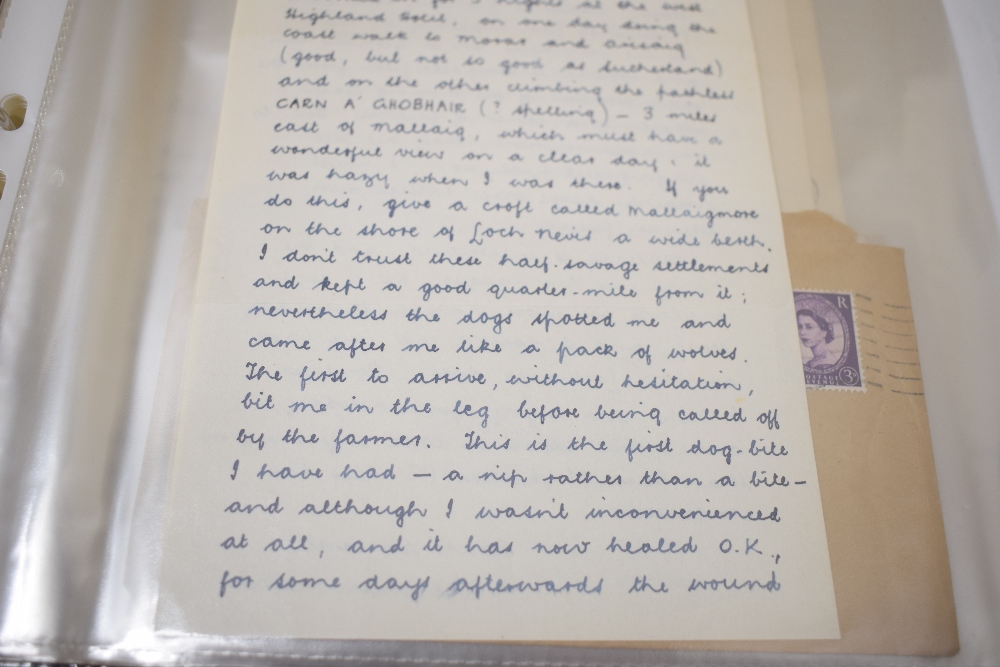 for 3 nights at the West
Highland Hotel, on one day doing the
coast walk to Morar and Arisaig
(good, but not so good as Sutherland)
and on the other climbing the pathless
CARN A' GHOBHAIR (? spelling) – 3 miles
east of Mallaig, which must have a
wonderful view on a clear day: it
was hazy when I was there. If you
do this, give a croft called Mallaigmore
on the shore of Loch Nevis a wide berth.
I don't trust these half-savage settlements
and kept a good quarter-mile from it;
nevertheless the dogs spotted me and
came after me like a pack of wolves.
The first to arrive, without hesitation,
bit me in the leg before being called off
by the farmer. This is the first dog-bite
I have had – a nip rather than a bite –
and although I wasn't inconvenienced
at all, and it has now healed O.K.,
for some days afterwards the wound
R
POSTAGE
REVENUE
3D